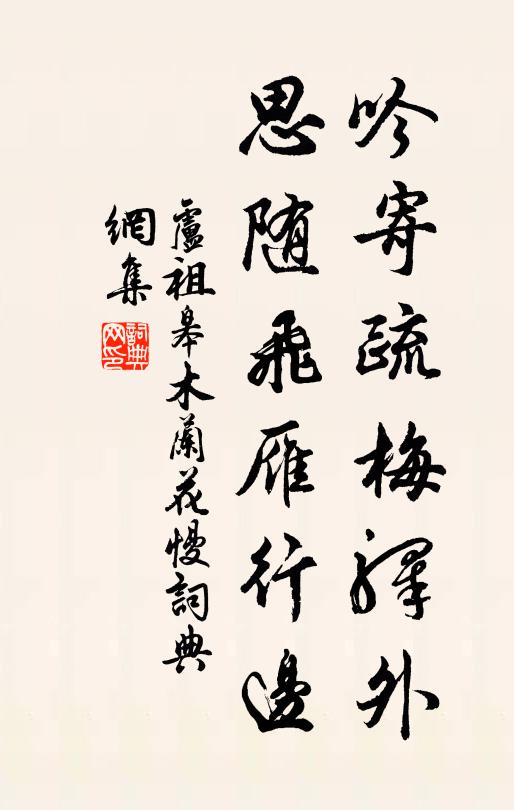 吟寄疏梅驛外
思随飛雁行邊
盧祖皋木蘭花慢詞典
網集
詞典
网印